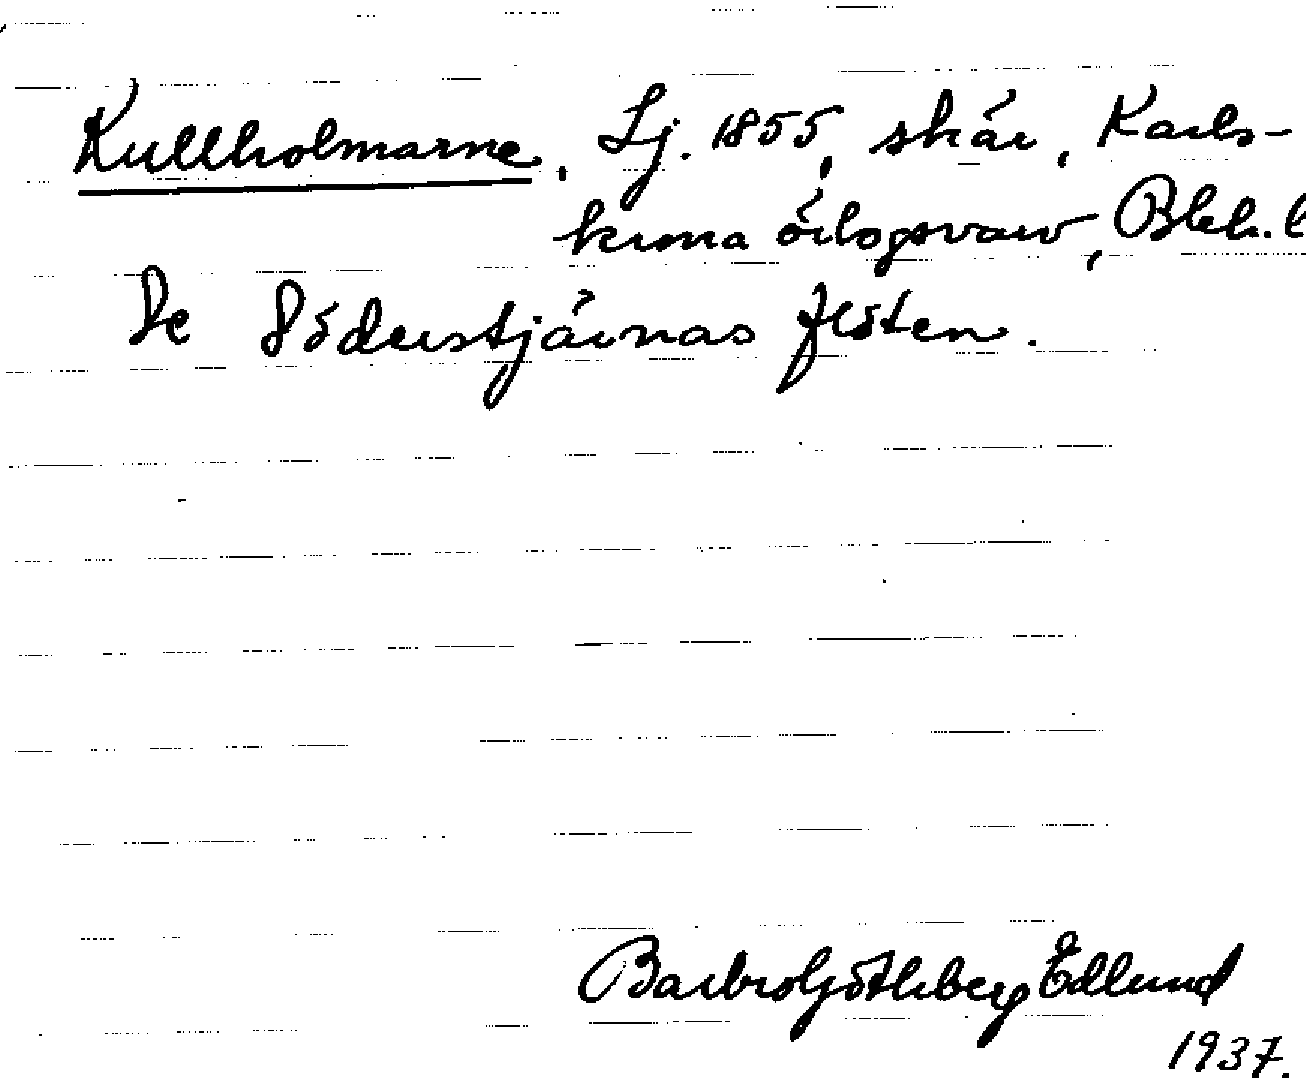 Kullholmarne, Sj. 1855, skär, Karls-
krona örlogsvarv, Blek. l
Se Söderstjärnas flöten.
Barbro Götheberg Edlund
1937.